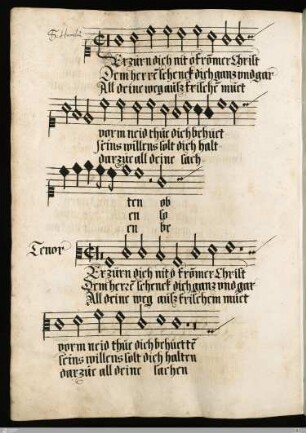 Erzürn dich nit ô frômer Christ
Dem herrē schenck dich ganz vnd gar
All deine weg auß frischē müet
vorm neid thüe dich behüet
seins willens solt dich halt
darzüe all deine sach
ten ob
en so
en be
Tenor
Erzürn dich nit ô frômer Christ
Dem herrē schenck dich ganz vnd gar
All deine weg auß frischem müet
vorm neid thüe dich behüettē
seins willens solt dich halten
darzüe all deine sachen